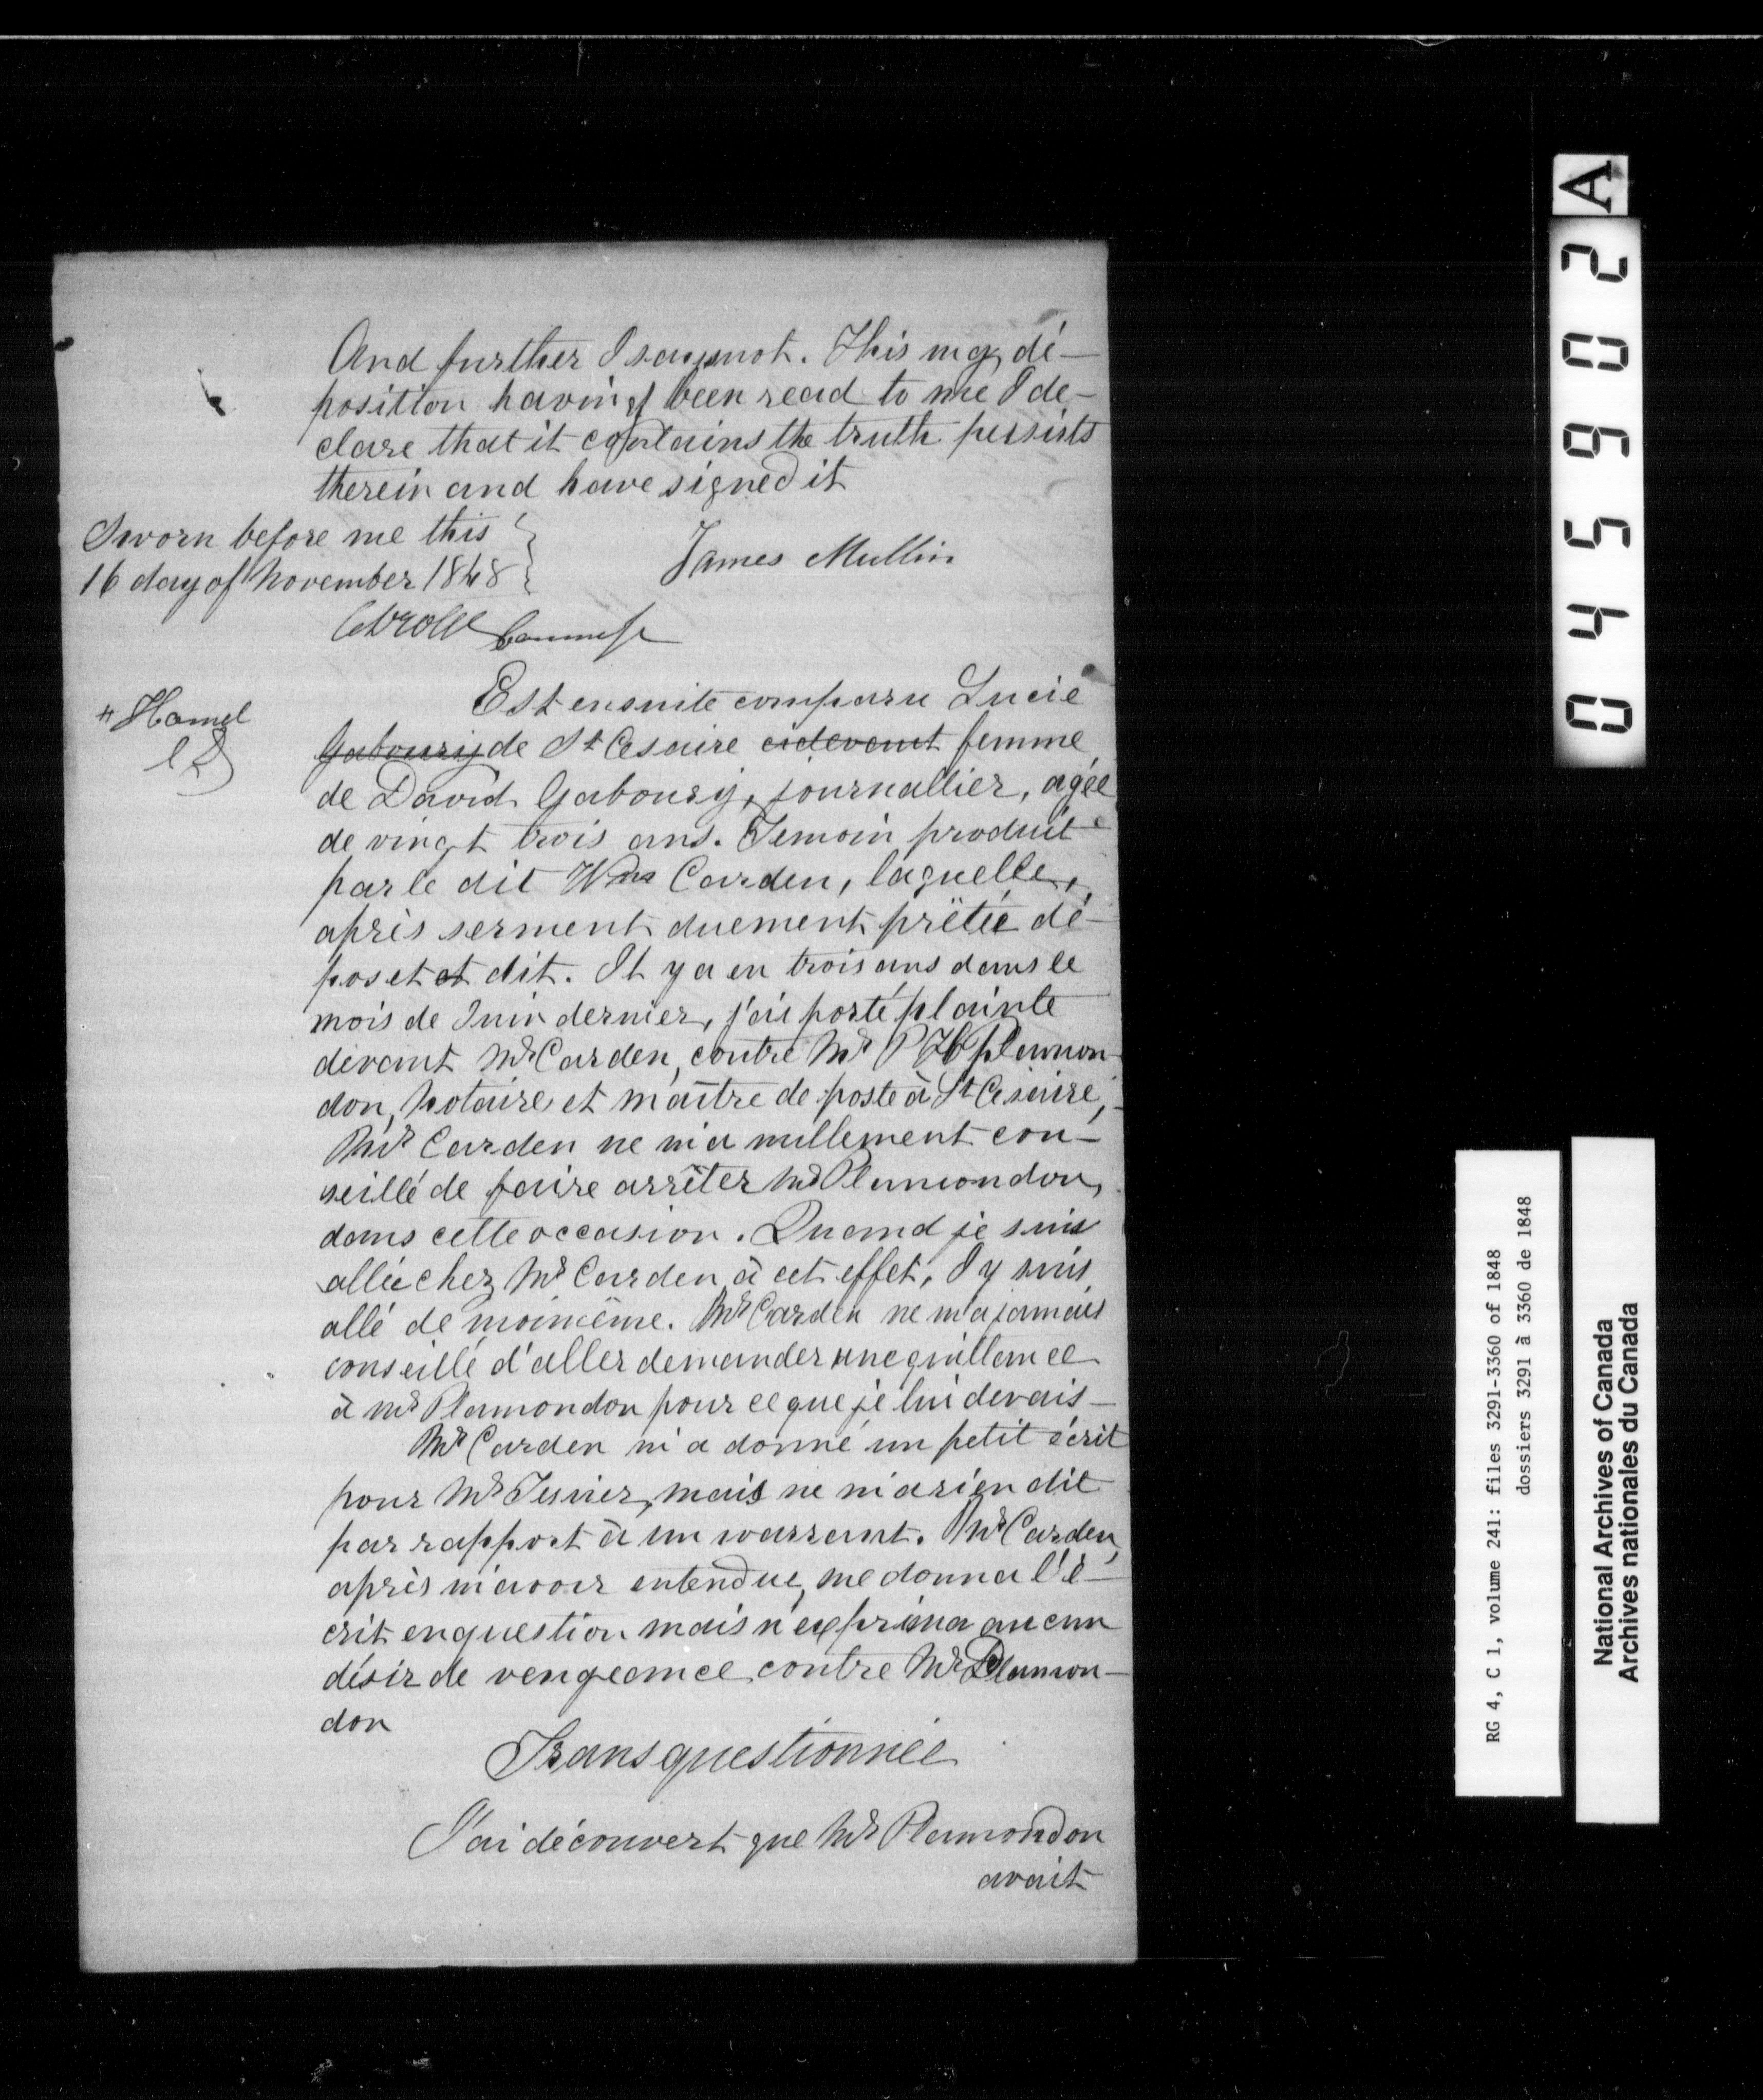 And further I say not. This my dé-
position having been read to me I de-
clare that it contains the truth persists
therein and have signed it
Sworn before me this
16 day of November 1848
James Mullin
Commr
Est ensuite comparu Lucie
# Hamel
Gaboury de St Cesaire cidevant femme
de David Gaboury, journallier, agée
de vingt trois ans. Temoin produit
par le dit Wm Carden, laquelle,
après serment duement prêtée dé-
pose et dit. Il y a eu trois ans dans le
mois de Juin dernier, j'ai porté plainte
devant Mr Carden, contre Mr P H Plamon-
don, Notaire et maître de poste à St Cesaire,
Mr Carden ne m'a nullement con-
seillé de faire arrêter Mr Plamondon,
dans cette occasion. Quand je suis
allée chez Mr Carden à cet effet, J'y suis
allé de moimême. Mr Carden ne m'a jamais
conseillé d'aller demander une quittance
à Mr Plamondon pour ce que je lui devais-
Mr Carden m'a donné un petit écrit
pour Mr Tesrier, mais ne m'a rien dit
par rapport à un warrant. Mr Carden,
après m'avoir entendue, me donna l'é-
crit en question mais n'exprima aucun
désir de vengeance contre Mr Plamon-
don
Transquestionnée
J'ai découvert que Mr Plamondon
avait
045902 A
RG 4, C 1, volume 241: files 3291-3360 of 1848
dossiers 3291 à 3360 de 1848
National Archives of Canada
Archives nationales du Canada